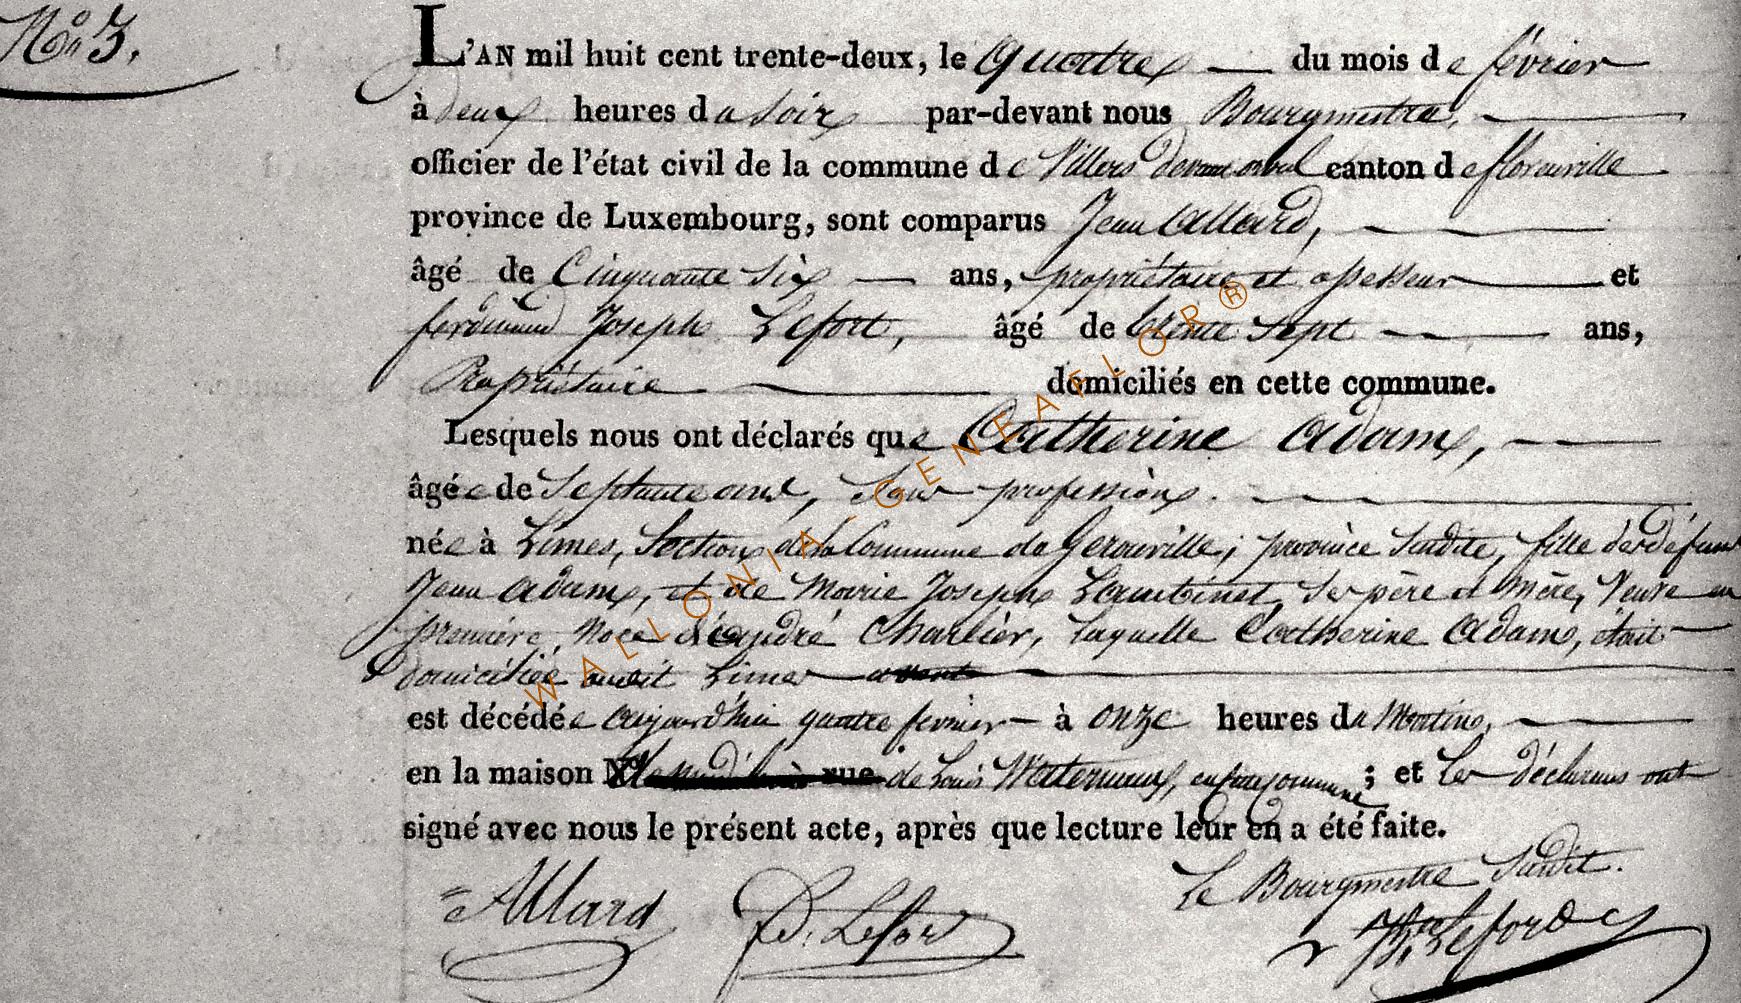 N° 3.
L'AN mil huit cent trente-deux, le quatre du mois de février
à deux heures du soir par-devant nous Bourgmestre,
officier de l'état civil de la commune de Villers devant orval canton de florenville
province de Luxembourg, sont comparus Jean Allard,
âgé de Cinquante six ans, propriétaire et assesseur et
ferdinand Joseph Lefort, âgé de trente sept ans,
Propriétaire domiciliés en cette commune.
Lesquels nous ont déclarés que Catherine Adam,
âgée de Septante ans, Sans profession.
née à Limes, Section de la Commune de Gerouville, province Susdite, fille de défunt
Jean Adam, et de Marie Joseph Lambinet, Ses père et Mère, Veuve en
première Noce d'andré Charlier, laquelle Catherine Adam, était
domiciliée audit Limes
est décédée aujourd'hui quatre fevrier à onze heures du Matin,
en la maison N° rue de Louis Watermaux, en cette Commune; et les déclarans ont
signé avec nous le présent acte, après que lecture leur en a été faite.
Allard
Lefort
Le Bourgmestre Susdit.
Lefort
WALLONIA-GENEAFLOR®